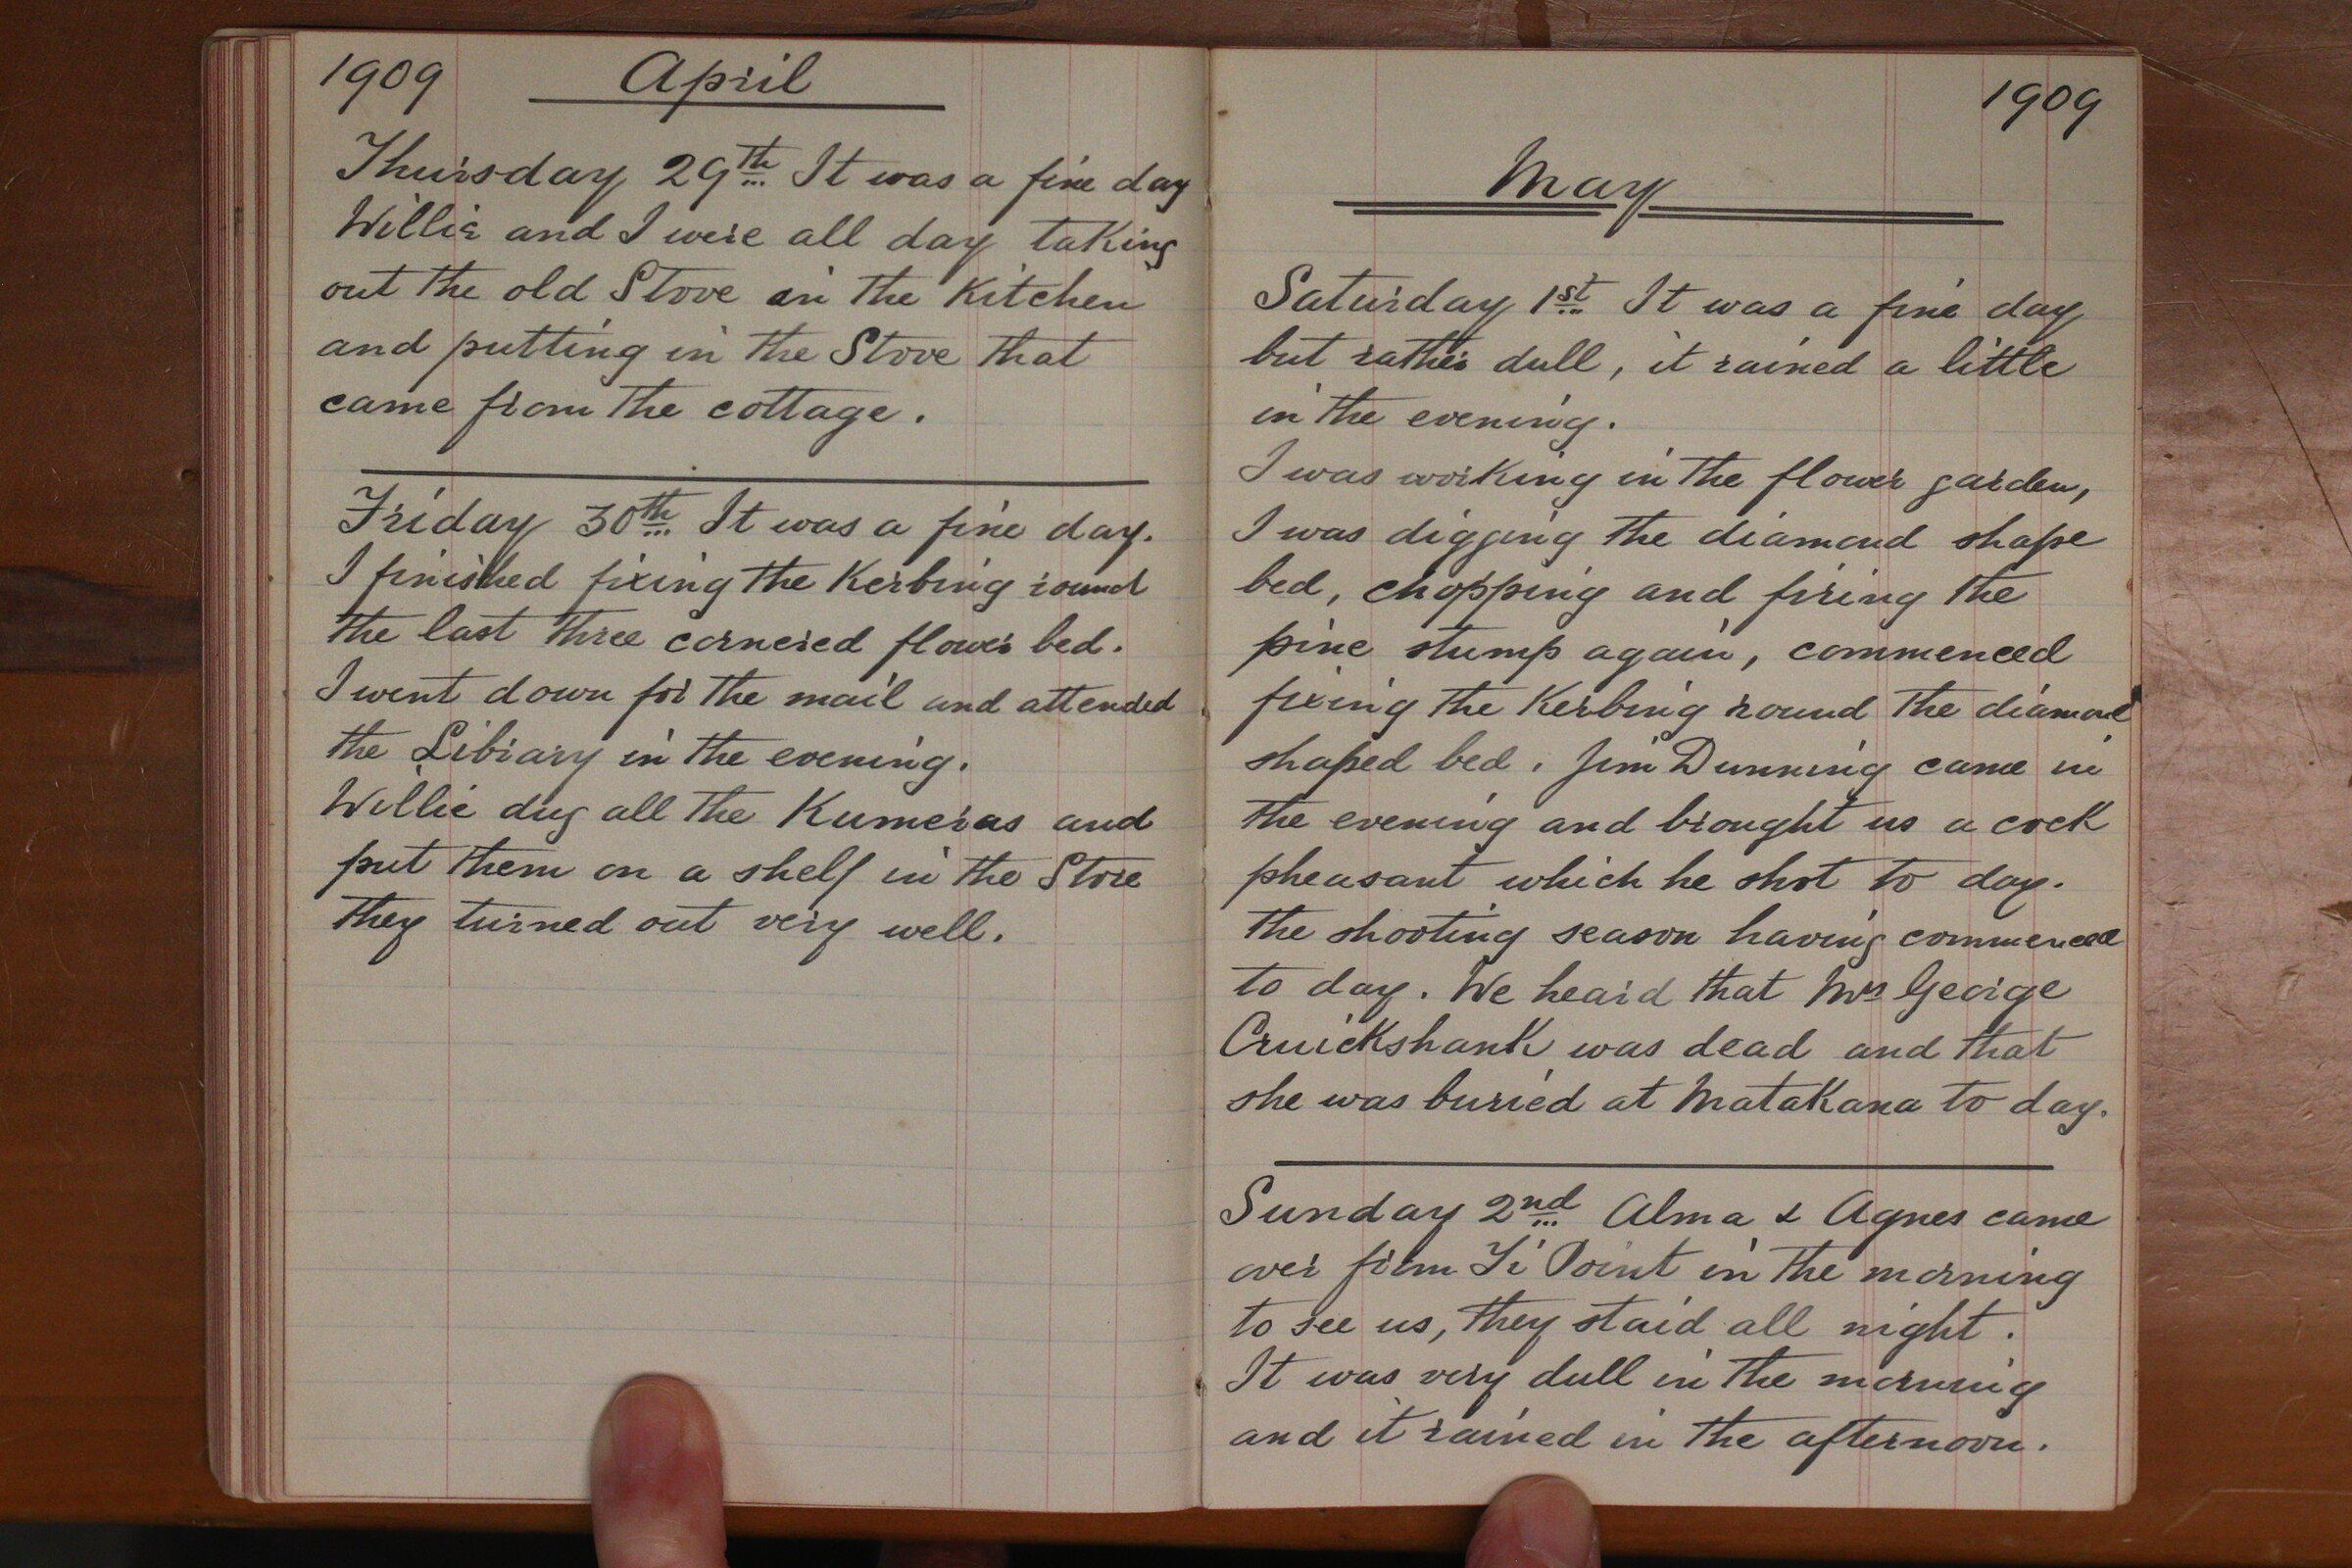 1909 April
Thursday 29th It was a fine day
Willie and I were all day taking
out the old Stove in the Kitchen
and putting in the Stove that
came from the cottage.
Friday 30th It was a fine day.
I finished fixing the Kerbing round
the last three cornered flower bed.
I went down for the mail and attended
the Library in the evening.
Willie dug all the Kumeras and
put them on a shelf in the Store
they turned out very well.
1909
May
Saturday 1st It was a fine day
but rather dull, it rained a little
in the evening.
I was working in the flower garden,
I was digging the diamond shape
bed, chopping and firing the
pine stump again, commenced
fixing the Kerbing round the diamond
shaped bed. Jim Dunning came in
the evening and brought us a cock
pheasant which he shot to day.
the shooting season having commenced
to day. We heard that Mrs George
Cruickshank was dead and that
she was buried at Matakana to day.
Sunday 2nd Alma & Agnes came
over from Ti Point in the morning
to see us, they staid all night.
It was very dull in the morning
and it rained in the afternoon.